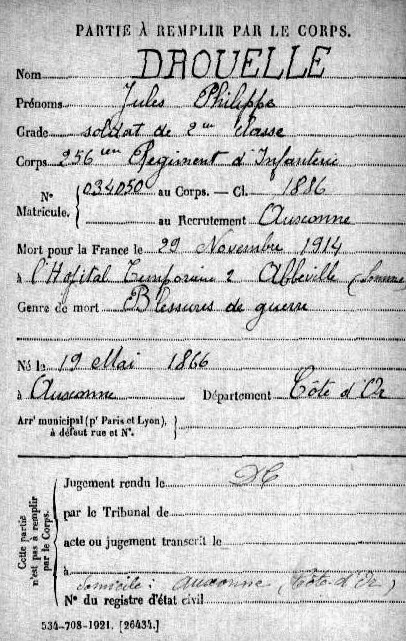 PARTIE À REMPLIR PAR LE CORPS.
Nom DROUELLE
Prénoms Jules Philippe
Grade soldat de 2me classe
Corps 256 Régiment d'Infanterie
N° Matricule. { 034050 au Corps. — Cl. 1886
au Recrutement Auxonne
Mort pour la France le 29 Novembre 1914
à l'Hopital Temporaire 2 Abbeville (Somme)
Genre de mort Blessures de guerre
Né le 19 Mai 1866
à Auxonne Département Côte d'Or
Arrt municipal (pr Paris et Lyon), à défaut rue et N°. }
Cette partie n'est pas à remplir par le Corps.
Jugement rendu le
par le Tribunal de
acte ou jugement transcrit le
à
domicile: Auxonne (Côte-d'Or)
N° du registre d'état civil
534-708-1921. [26434.]